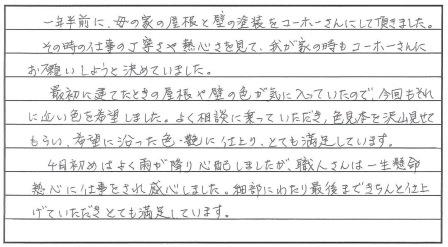 一年半前に、母の家の屋根と壁の塗装をコーホーさんにして頂きました。
その時の仕事の丁寧さや熱心さを見て、我が家の時もコーホーさんに
お願いしようと決めていました。
最初に建てたときの屋根や壁の色が気に入っていたので、今回もそれ
に近い色を希望しました。よく相談に乗っていただき、色見本を沢山見せて
もらい、希望に沿った色・艶に仕上り、とても満足しています。
4月初めはよく雨が降り心配しましたが、職人さんは一生懸命
熱心に仕事をされ感心しました。細部にわたり最後まできちんと仕上
げていただきとても満足しています。